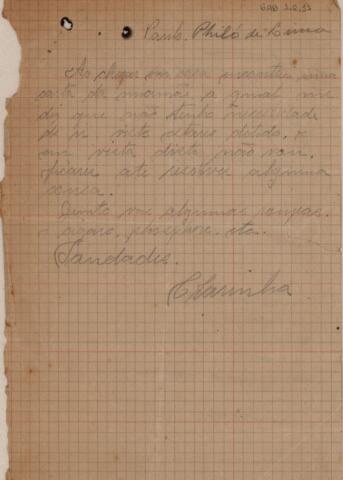 Paulo Philó de Lima
Ao chegar em casa encontrei uma
carta de mamãe a qual me
diz que não tenho necessidade
de ir
em vista disto não vou,
ficarei até resolver alguma
coisa.
Junto vae algumas roupas,
phosphoro, etc.
Saudades.
Clarinha